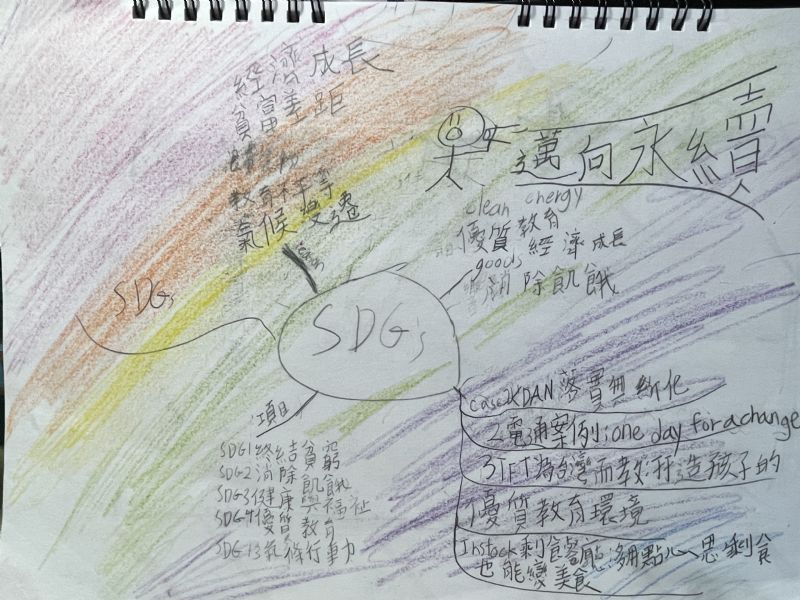 經濟成長
貧富差距
教育不平等
氣候變遷
reason
邁向永續
clean energy
優質教育
經濟成長
goods
消除飢餓
SDGs
SDG's
項目
SDG1終結貧窮
SDG2消除飢餓
SDG3健康與福祉
SDG4優質教育
SDG13氣候行動
KDAN落實無紙化
2電通案例:one day for a change
3TFT為台灣而教打造孩子的
優質教育環境
Instock剩食餐廳:多點心思剩食
也能變美食